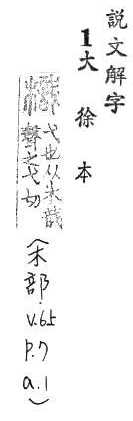 説文解字
1大徐本
樴 弋也从木戠
聲之弋切
(木部.V.6上
P.7
a.1)